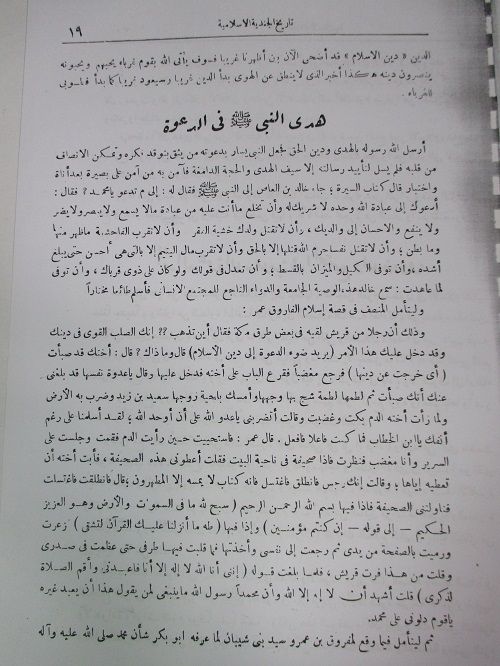 تاريخ الجندية الاسلامية ١٩
الدين « دين الاسلام » قد أضحى الآن بين أظهرنا غريبا فسوف يأتى الله بقوم غرباء يحبهم ويحبونه
ينصرون دينه هكذا أخبر الذى لا ينطق عن الهوى بدأ الدين غريبا وسيعود غريبا كما بدأ فطوبى
للغرباء .
هدى النبى ﷺ فى الدعوة
أرسل الله رسوله بالهدى ودين الحق فجعل النبى يسار بدعوته من يثق بنوقد فكره وتمكن الانصاف
من قلبه فلم يسل لتأييد رسالته إلا سيف الهدى والحجة الدامغة فآمن به من آمن على بصيرة بعد أناة
واختيار قال كتاب السيرة ؛ جاء خالد بن العاص إلى النبى ﷺ فقال له : إلى م تدعو يا محمد ؟ فقال :
أدعوك إلى عبادة الله وحده لا شريك له وأن تخلع ما أنت عليه من عبادة مالا يسمع ولا يبصر ولا يضر
ولا ينفع والاحسان إلى والديك ، وأن لا تقتل ولدك خشية الفقر وأن لا تقرب الفاحشة ما ظهر منها
وما بطن ؛ وأن لا تقتل نفسا حرم الله قتلها إلا بالحق وأن لا تقرب مال اليتيم إلا بالتى هى أحسن حتى يبلغ
أشده ، وأن توفى الكيل والميزان بالقسط ؛ وأن تعدل فى قولك ولو كان على ذوى قرباك ، وأن توفى
لما عاهدت : سمع خالد هذه الوصية الجامعة والدواء الناجع للمجتمع الانسانى فأسلم طائعا مختارا
وليتأمل المنصف فى قصة إسلام الفاروق عمر :
وذلك أن رجلا من قريش لقيه فى بعض طرق مكة فقال أين تذهب ؟؟ إنك الصلب القوى فى دينك
وقد دخل عليك هذا الأمر ( يريد ضوء الدعوة إلى دين الاسلام ) قال وما ذاك ؟ قال : أختك قد صبأت
( أى خرجت عن دينها ) فرجع مغضبا فقرع الباب على أخته فدخل عليها وقال يا عدوة نفسها قد بلغنى
عنك أنك صبأت ثم لطمها لطمة شج بها وجهها وأمسك بلحية زوجها سعيد بن زيد وضرب به الأرض
ولما رأت أخته الدم بكت وغضبت وقالت أتضربنى يا عدو الله على أن أوحد الله ، لقد أسلمنا على رغم
أنفك يا ابن الخطاب فما كنت فاعلا فافعل . قال عمر : فاستحييت حين رأيت الدم فقمت وجلست على
السرير وأنا مغضب فنظرت فاذا صحيفة فى ناحية البيت فقلت أعطونى هذه الصحيفة ، فأبت أخته أن
تعطيه إياها ؛ وقالت إنك رجس فانطلق فاغتسل فانه كتاب لا يمسه إلا المطهرون ؛ قال فانطلقت فاغتسلت
فناولتنى الصحيفة فاذا فيها بسم الله الرحمن الرحيم ( سبح لله ما فى السموات والأرض وهو العزيز
الحكيم — إلى قوله — إن كنتم مؤمنين ) وإذا فيها ( طه ما أنزلنا عليك القرآن لتشقى ) زعرت
ورميت بالصفحة من يدى ثم رجعت إلى نفسى وأخذتها فما قلبت فيها طرفى حتى عظمت فى صدرى
وقلت من هذا فرت قريش ، فلما بلغت قوله ( إننى أنا الله لا إله إلا أنا فاعبدنى وأقم الصلاة
لذكرى ) قلت أشهد أن لا إله إلا الله وأن محمدا رسول الله ما ينبغى لمن يقول هذا أن يعبد غيره
ياقوم دلونى على محمد .
ثم ليتأمل فيما وقع لمفروق بن عمرو سيد بنى شيبان لما عرفه ابو بكر شأن محمد صلى الله عليه وآله